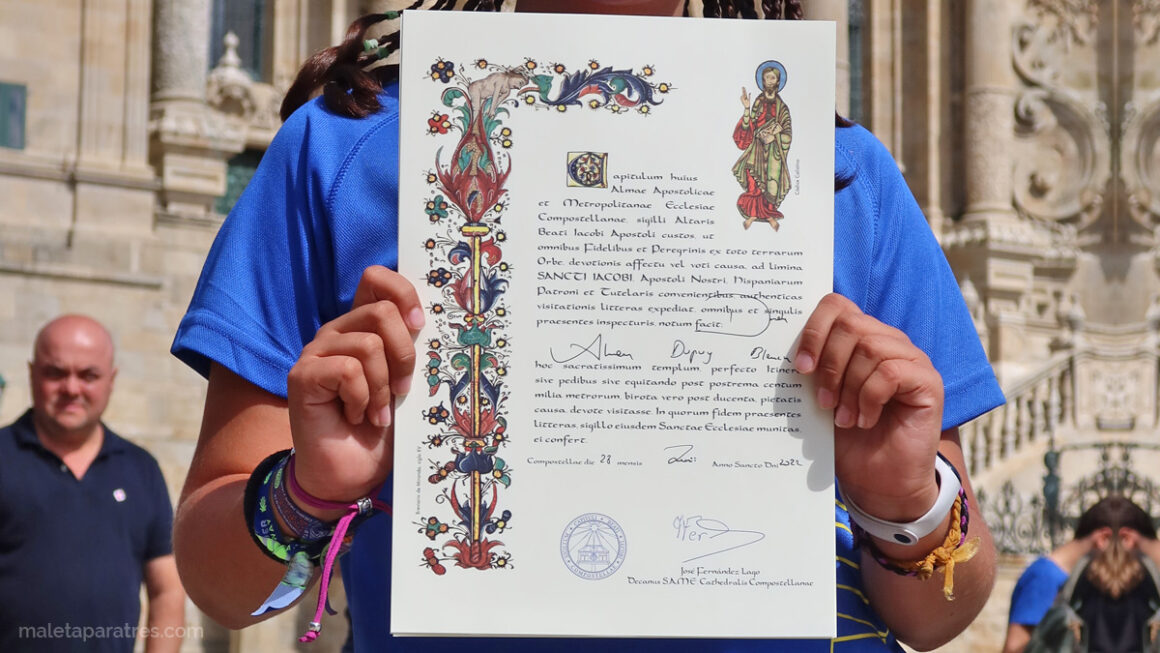 Capitulum huius
Almae Apostolicae
et Metropolitanae Ecclesiae
Compostellanae, sigilli Altaris
Beati Iacobi Apostoli custos, ut
omnibus Fidelibus et Peregrinis ex toto terrarum
Orbe, devotionis affectu vel voti causa, ad limina
SANCTI IACOBI, Apostoli Nostri, Hispaniarum
Patroni et Tutelaris convenientibus, authenticas
visitationis litteras expediat, omnibus et singulis
praesentes inspecturis, notum facit:
Dupuy
hoc sacratissimum templum, perfecto Itinere
sive pedibus sive equitando post postrema centum
milia metrorum, birota vero post ducenta, pietatis
causa, devote visitasse. In quorum fidem praesentes
litteras, sigillo eiusdem Sanctae Ecclesiae munitas,
ei confert.
Compostellae die 28 mensis Anno Sancto Dni 2022
José Fernández Lago
Decanus S.A.M.E. Cathedralis Compostellanae
Codex Calixtino
maletaparatres.com